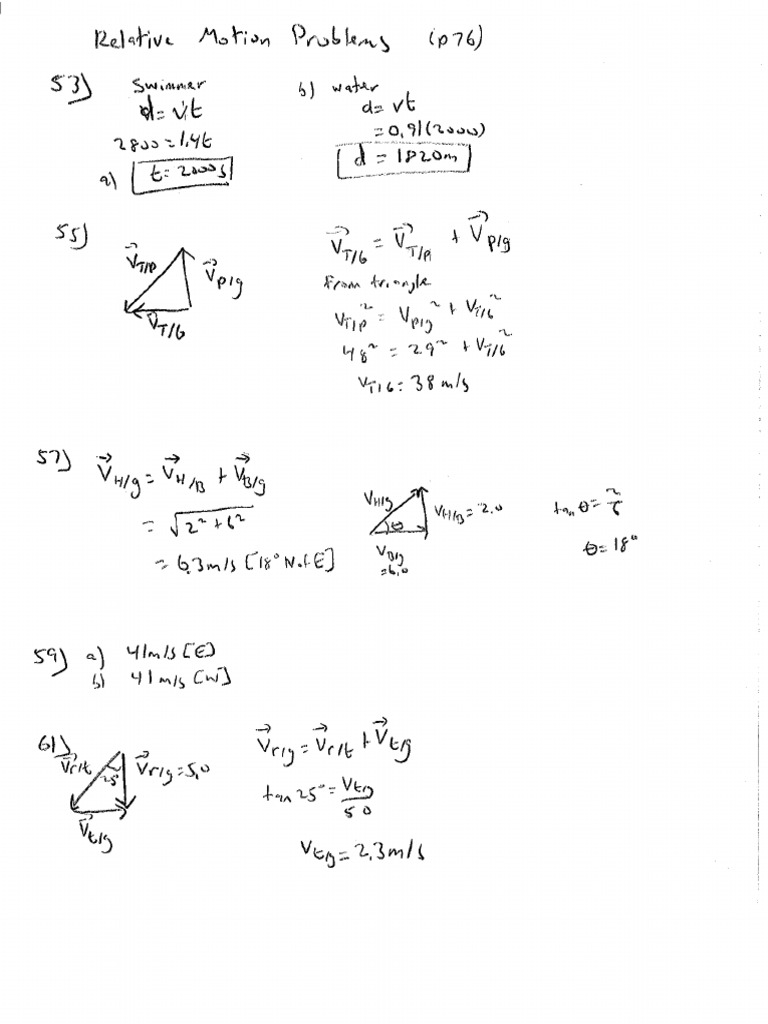 Relative Motion Problems (p76)
53) Swimmer
d = vt
2800 = 1.4t
a) t = 2000s
b) water
d = vt
= 0.91(2000)
d = 1820m
55)
V⃗T/P
V⃗P/g
V⃗T/G
V⃗T/G = V⃗T/P + V⃗P/g
From triangle
VT/P² = VP/g² + VT/G²
48² = 29² + VT/G²
VT/G = 38 m/s
57) V⃗H/g = V⃗H/B + V⃗B/g
= √2² + 6²
= 6.3 m/s [18° N of E]
VH/g
VH/B = 2.0
θ
VB/g
= 6.0
tan θ = 2/6
θ = 18°
59) a) 41 m/s [E]
b) 41 m/s [W]
61)
V⃗r/t
25°
V⃗r/g = 5.0
V⃗t/g
V⃗r/g = V⃗r/t + V⃗t/g
tan 25° = Vt/g / 5.0
Vt/g = 2.3 m/s